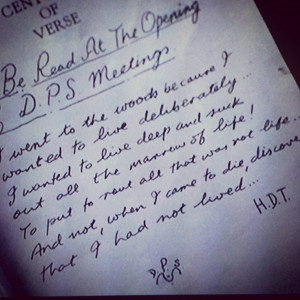 CENT
OF
VERSE
Be Read At The Opening
D.P.S Meetings
I went to the woods because I
wanted to live deliberately...
I wanted to live deep and suck
out all the marrow of life!
To put to rout all that was not life...
And not, when I came to die, discover
that I had not lived...
H.D.T.
D P S